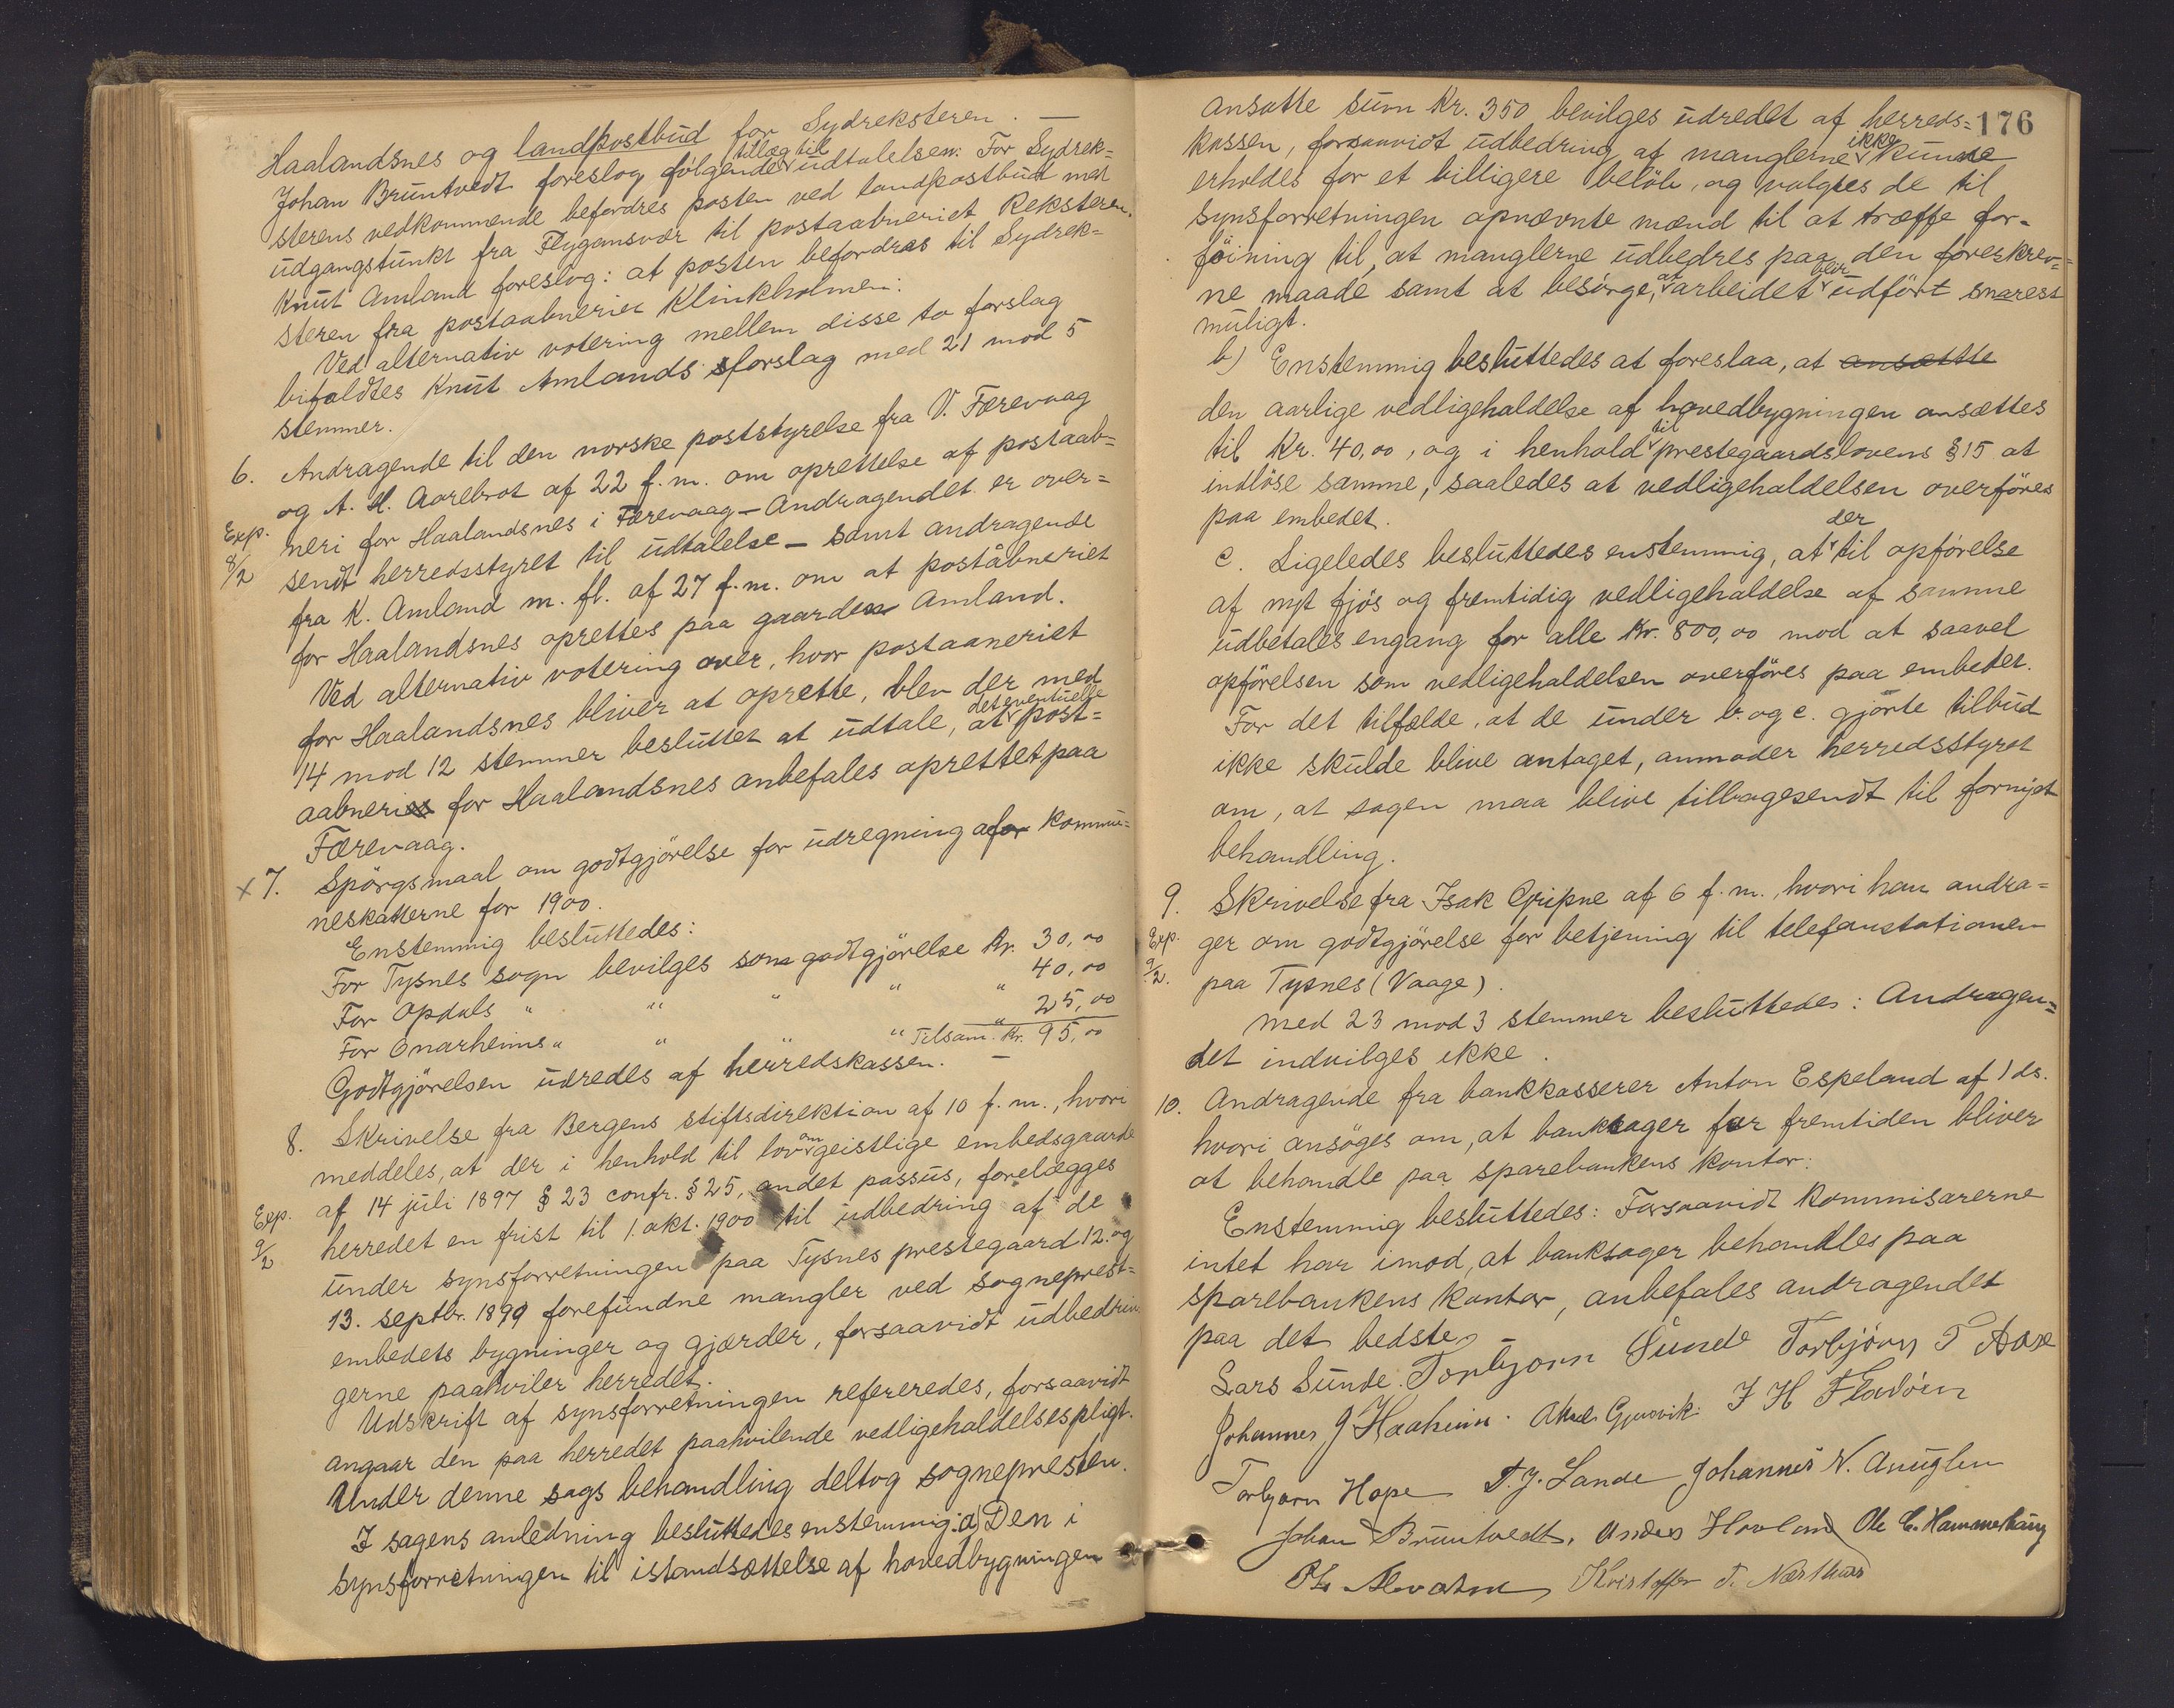 Haalandsnes og landpostbud for Sydreksteren. —
Johan Bruntvedt foreslog følgende tillæg til udtalelsen: For Sydrek=
sterens vedkommende befordres posten ved landpostbud med
udgangstunkt fra Flygansvær til postaabneriet Reksteren.
Knut Amland foreslog: at posten befordres til Sydrek=
steren fra postaabneriet Klinkholmen.
Ved alternativ votering mellem disse to forslag
bifaldtes Knut Amlands forslag med 21 mod 5
stemmer.
6. Andragende til den norske poststyrelse fra V. Færevaag
og A. H. Aarebrot af 22 f. m. om oprettelse af postaab=
Exp. 8/2 neri for Haalandsnes i Færevaag – Andragendet er over=
sendt herredsstyret til udtalelse – samt andragende
fra K. Amland m. fl. af 27 f. m. om at poståbneriet
for Haalandsnes oprettes paa gaarden Amland.
Ved alternativ votering over, hvor postaaneriet
for Haalandsnes bliver at oprette, blev der med
14 mod 12 stemmer besluttet at udtale, at det eventuelle post=
aabneri for Haalandsnes anbefales oprettet paa
Færevaag.
x 7. Spørgsmaal om godtgjörelse for udregning af kommu=
neskatterne for 1900.
Enstemmig besluttedes:
For Tysnes sogn bevilges som godtgjörelse Kr. 30,00
For Opdals " " " " " 40,00
For Onarheims " " " " " 25,00
Tilsam. Kr. 95,00
Godtgjörelsen udredes af herredskassen. —
8. Skrivelse fra Bergens stiftsdirektion af 10 f. m., hvori
meddeles, at der i henhold til lov om geistlige embedsgaarde
af 14 juli 1897 § 23 confr. § 25, andet passus, forelægges
Exp. 9/2 herredet en frist til 1. okt. 1900 til udbedring af de
under synsforretningen paa Tysnes prestegaard 12. og
13. septbr. 1899 forefundne mangler ved sogneprest=
embedets bygninger og gjærder, forsaavidt udbedrin
gerne paahviler herredet.
Udskrift af synsforretningen refereredes, forsaavidt
angaar den paa herredet paahvilende vedligeholdelsespligt.
Under denne sags behandling deltog sognepresten.
I sagens anledning besluttedes enstemmig: a) Den i
synsforretningen til istandsættelse af hovedbygningen
176
ansatte sum Kr. 350 bevilges udredet af herreds=
kassen, forsaavidt udbedring af manglerne ikke kunne
erholdes for et billigere belöb, og valgtes de til
synsforretningen opnævnte mænd til at træffe for=
föining til, at manglerne udbedres paa den foreskrev=
ne maade samt at besörge, at arbeidet blir udfört snarest
muligt.
b) Enstemmig besluttedes at foreslaa, at ansætte
den aarlige vedligeholdelse af hovedbygningen ansættes
til Kr. 40,00, og i henhold til prestegaardslovens § 15 at
indlöse samme, saaledes at vedligeholdelsen overföres
paa embedet.
c. Ligeledes besluttedes enstemmig, at der til opförelse
af nyt fjös og fremtidig vedligeholdelse af samme
udbetales engang for alle Kr. 800,00 mod at saavel
opförelsen som vedligeholdelsen overföres paa embedet.
For det tilfælde, at de under b. og c. gjorte tilbud
ikke skulde blive antaget, anmoder herredsstyret
om, at sagen maa blive tilbagesendt til fornyet
behandling.
9. Skrivelse fra Isak Gripne af 6 f. m., hvori han andra=
Exp. 9/2. ger om godtgjörelse for betjening til telefonstationen
paa Tysnes (Vaage).
Med 23 mod 3 stemmer besluttedes: Andragen=
det indvilges ikke.
10. Andragende fra bankkasserer Anton Espeland af 1 ds.
hvori ansöges om, at banksager for fremtiden bliver
at behandle paa sparebankens kontor.
Enstemmig besluttedes: Forsaavidt kommisærerne
intet har imod, at banksager behandles paa
sparebankens kontor, anbefales andragendet
paa det bedste. —
Lars Sunde. Torbjorn Sunde Torbjörn T Aase
Johannes J Haaheim. Aksel Gjersvik. J H Fladöen
Torbjorn Hope T. J. Lande Johannes N. Anuglen
Johan Bruntvedt. Anders Hovland Ole C. Hammerhaug
Kristoffer T. Næsthus